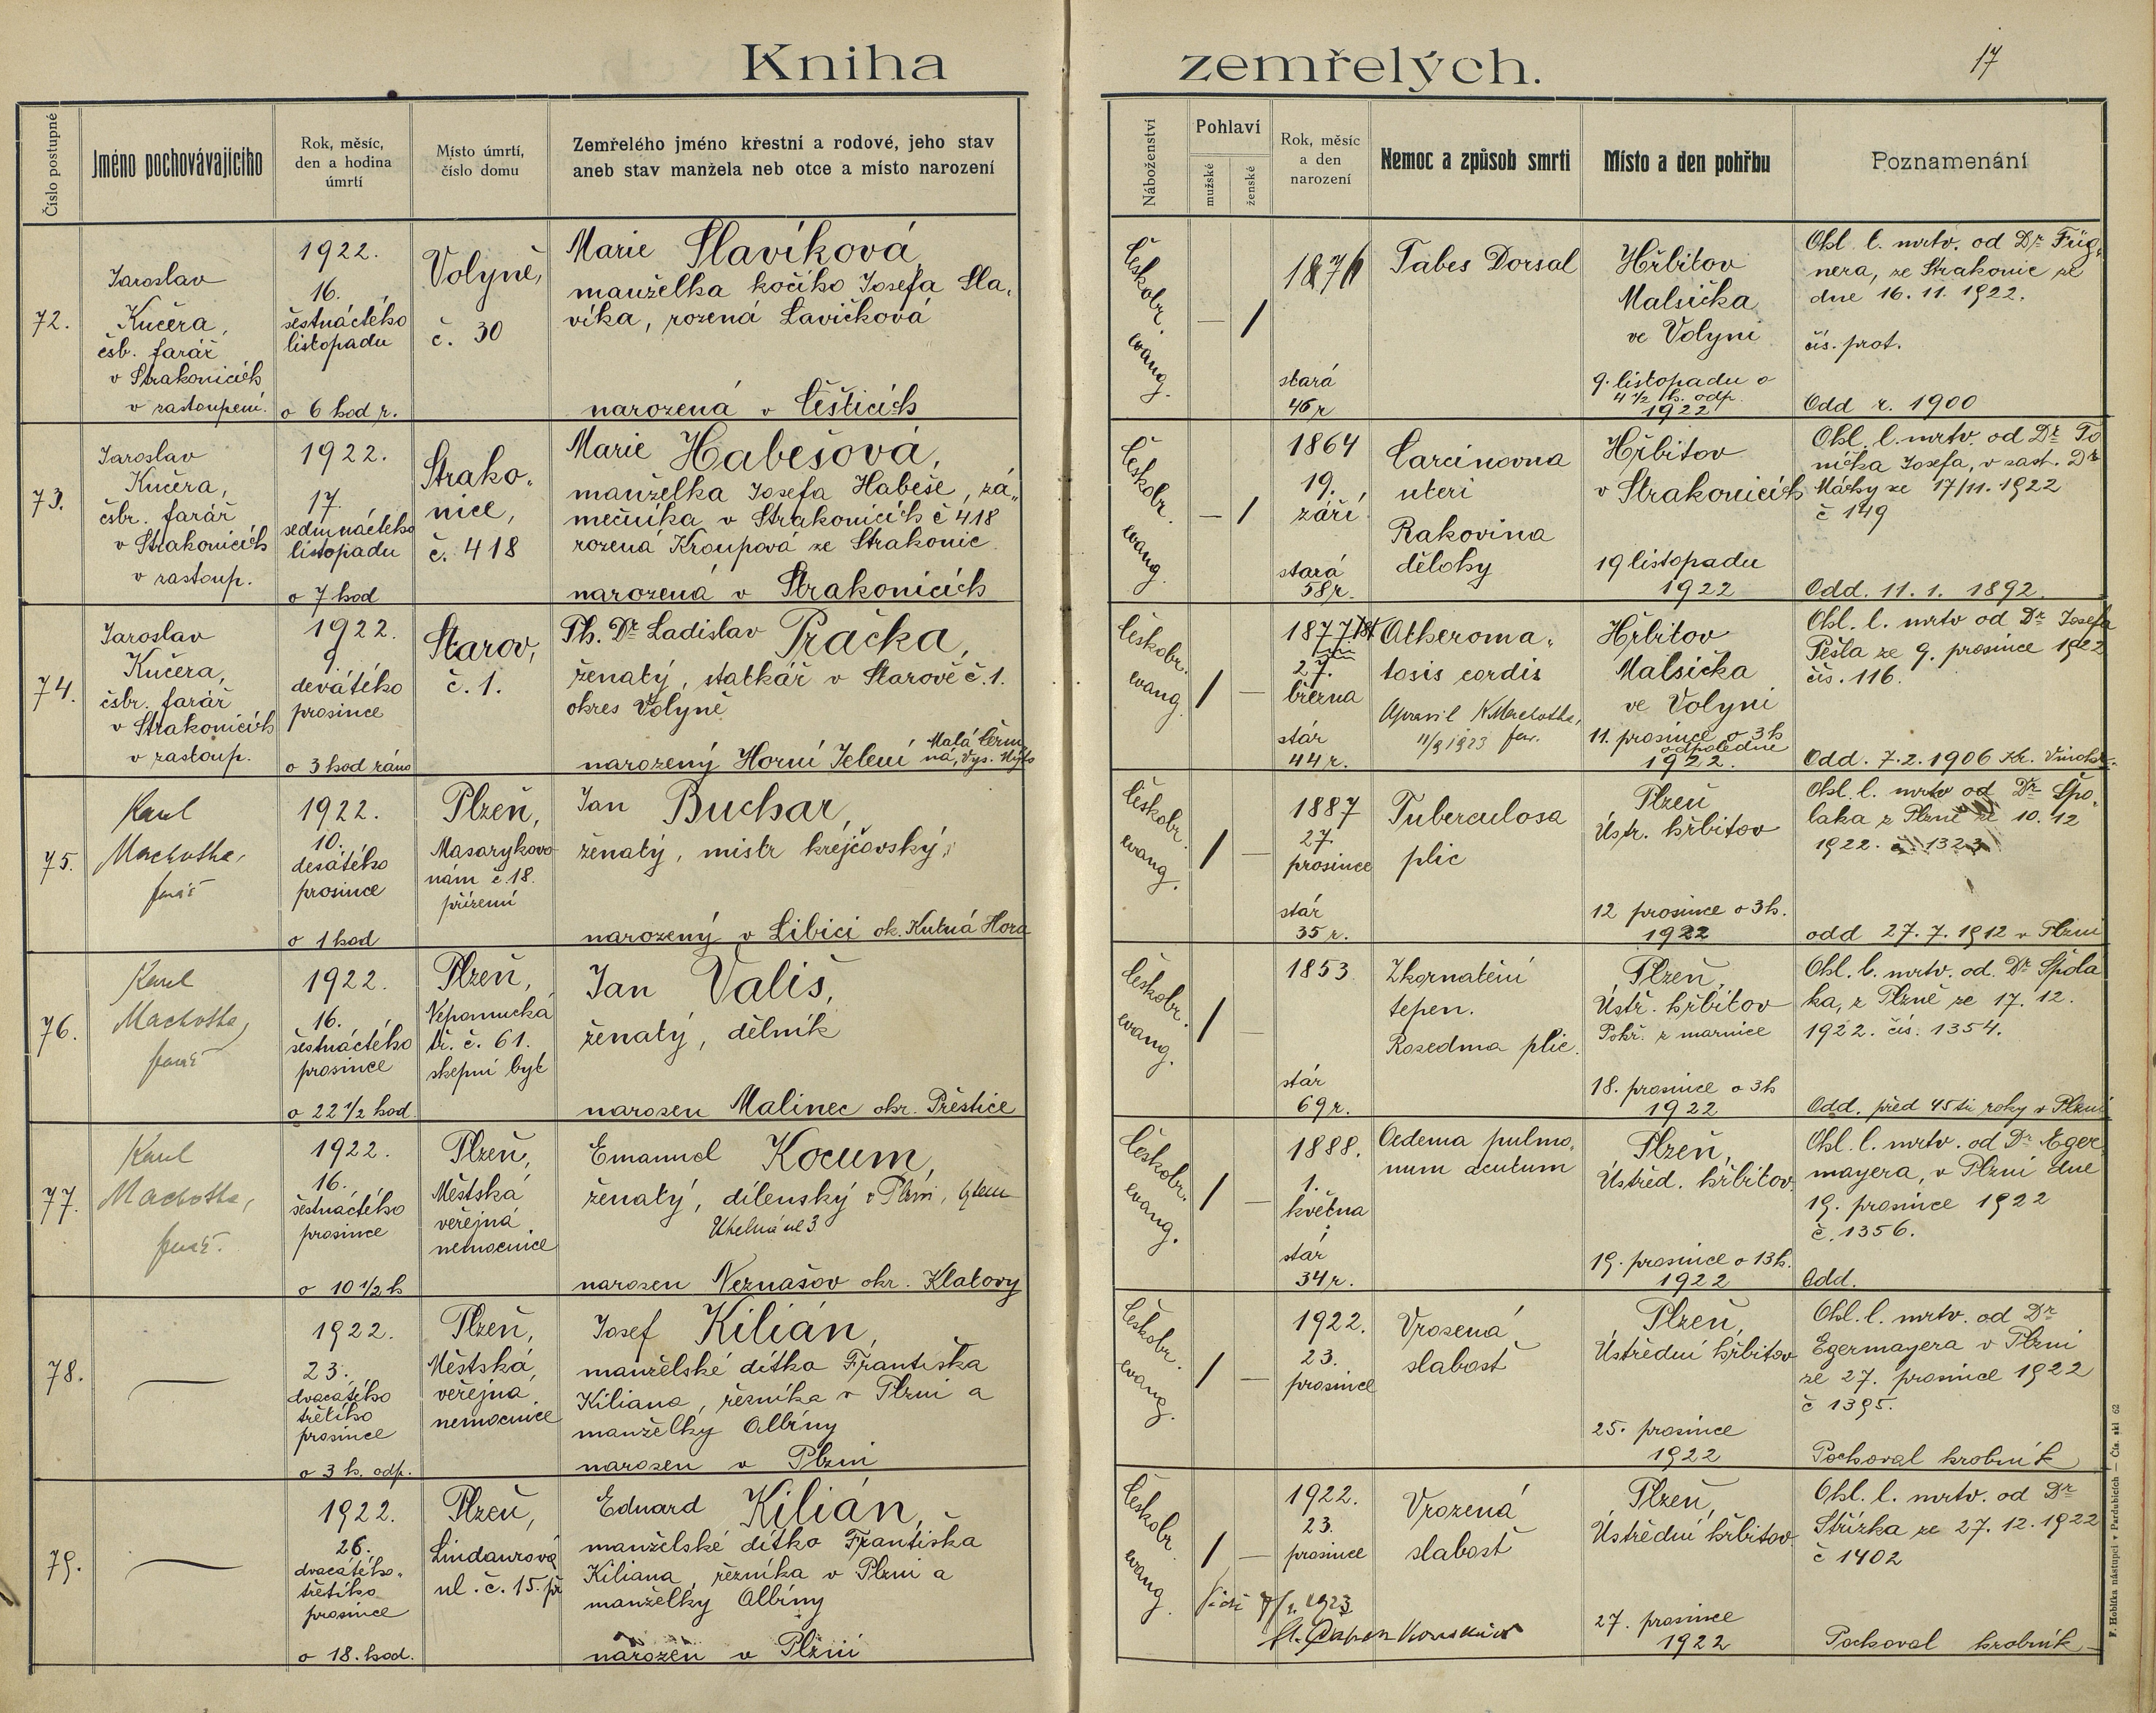 Kniha zemřelých.
17
Číslo postupné
Jméno pochovávajícího
Rok, měsíc,
den a hodina
úmrtí
Místo úmrtí,
číslo domu
Zemřelého jméno křestní a rodové, jeho stav
aneb stav manžela neb otce a místo narození
Náboženství
Pohlaví
mužské
ženské
Rok, měsíc
a den
narození
Nemoc a způsob smrti
Místo a den pohřbu
Poznamenání
72.
Jaroslav
Kučera,
čsb. farář
v Strakonicích
v zastoupení.
1922.
16.
šestnáctého
listopadu
o 6 hod r.
Volyně,
č. 30
Marie Slavíková,
manželka kočího Josefa Sla-
víka, rozená Lavičková
narozená v Čěšticích
Českobr.
evang.
— /
1876
stará
46 r
Tabes Dorsal
Hřbitov
Malsička
ve Volyni
9. listopadu o
4 1/2 h. odp.
1922
Ohl. l. mrtv. od Dr. Füg-
nera, ze Strakonic ze
dne 16. 11. 1922.
čís. prot.
Odd r. 1900
73.
Jaroslav
Kučera,
čsbr. farář
v Strakonicích
v zastoup.
1922.
17.
sedmnáctého
listopadu
o 7 hod
Strako-
nice,
č. 418
Marie Habešová,
manželka Josefa Habeše, zá-
mečníka v Strakonicích č 418
rozená Kroupová ze Strakonic
narozená v Strakonicích
Českobr.
evang.
— /
1864
19.
září
stará
58 r.
Carcinovna
uteri
Rakovina
dělohy
Hřbitov
v Strakonicích
19 listopadu
1922
Ohl. l. mrtv. od Dr To
níčka Josefa, v zast. Dr
Márky ze 17/11. 1922
č 149
Odd. 11. 1. 1892.
74.
Jaroslav
Kučera,
čsbr. farář
v Strakonicích
v zastoup.
1922.
9.
devátého
prosince
o 3 hod ráno
Starov,
č. 1.
Ph. Dr Ladislav Pračka,
ženatý, statkář v Starově č. 1.
okres Volyně
narozený Horní Jelení Malá Čerm
ná, Vys. Mýto
Českobr.
evang.
/ —
1877
27.
března
stár
44 r.
Atheroma-
tosis cordis
Opravil K Machotka,
11/9 1923 far.
Hřbitov
Malsička
ve Volyni
11. prosince o 3 h
odpoledne
1922.
Ohl. l. mrtv od Dr Josefa
Pešla ze 9. prosince 1922
čís. 116.
Odd. 7. 2. 1906 Kr. Vinohr.
75.
Karel
Machotka,
farář
1922.
10.
desátého
prosince
o 1 hod
Plzeň,
Masarykovo
nám č. 18.
přízemí
Jan Buchar,
ženatý, mistr krejčovský,
narozený v Libici ok. Kutná Hora
Českobr.
evang.
/ —
1887
27.
prosince
stár
35 r.
Tuberculosa
plic
Plzeň
Ústř. hřbitov
12 prosince o 3 h.
1922
Ohl. l. mrtv od Dr Špo-
laka z Plzně ze 10. 12
1922. č. 1323
odd 27. 7. 1912 v Plzni
76.
Karel
Machotka,
farář
1922.
16.
šestnáctého
prosince
o 22 1/2 hod.
Plzeň,
Nepomucká
tř. č. 61.
sklepní byt
Jan Vališ,
ženatý, dělník
narozen Malinec okr. Přeštice
Českobr.
evang.
/ —
1853
stár
69 r.
Zkornatění
tepen.
Rozedma plic.
Plzeň,
Ústř. hřbitov
Pohř. z márnice
18. prosince o 3 h
1922
Ohl. l. mrtv. od. Dr Špola
ka, z Plzně ze 17. 12.
1922. čís. 1354.
Odd. před 45 ti roky v Plzni
77.
Karel
Machotka,
farář.
1922.
16.
šestnáctého
prosince
o 10 1/2 h
Plzeň,
Městská
veřejná
nemocnice
Emanuel Kocum,
ženatý, dílenský v Plzni,
Uhelná ul 3
narozen Neznašov okr. Klatovy
Českobr.
evang.
/ —
1888.
1.
května
stár
34 r.
Oedema pulmo-
num acutum
Plzeň,
Ústřed. hřbitov
19. prosince o 13 h.
1922
Ohl. l. mrtv. od Dr Eger
mayera, v Plzni dne
19. prosince 1922
č. 1356.
Odd.
78.
—
1922.
23.
dvacátého
třetího
prosince
o 3 h. odp.
Plzeň,
Městská
veřejná
nemocnice
Josef Kilián,
manželské dítko Františka
Kiliana, řezníka v Plzni a
manželky Albíny
narozen v Plzni
Českobr.
evang.
/ —
1922.
23.
prosince
Vrozená
slabost
Plzeň,
Ústřední hřbitov
25. prosince
1922
Ohl. l. mrtv. od Dr
Egermayera v Plzni
ze 27. prosince 1922
č 1395.
Pochoval hrobník
79.
—
1922.
26.
dvacátého-
třetího
prosince
o 18. hod.
Plzeň,
Lindaurová
ul. č. 15. př
Eduard Kilián,
manželské dítko Františka
Kiliana, řezníka v Plzni a
manželky Albíny
narozen v Plzni
Českobr.
evang.
/ —
1922.
23.
prosince
Vrozená
slabost
Plzeň,
Ústřední hřbitov
27. prosince
1922
Ohl. l. mrtv. od Dr
Střízka ze 27. 12. 1922
č 1402
Pochoval hrobník
1923
F. Hoblíka nástupci v Pardubicích — Čís. skl 62